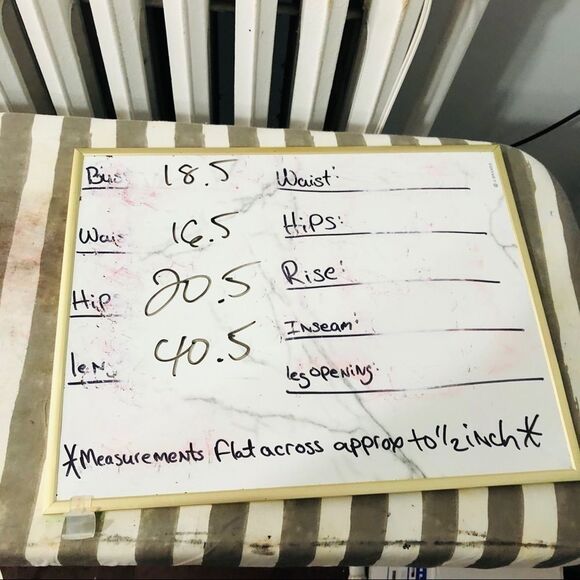 Bus 18.5
Wai 16.5
Hip 20.5
leN 40.5
Waist:
HiPs:
Rise:
INseam:
legOPENiNg:
*Measurements flat across approx to 1/2 inch*